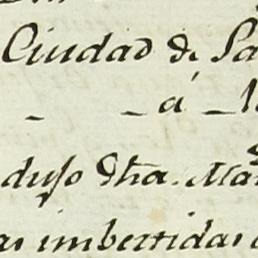 Ciudad de Sa
- - á - l
dujo dha. Ma
as imbertidas